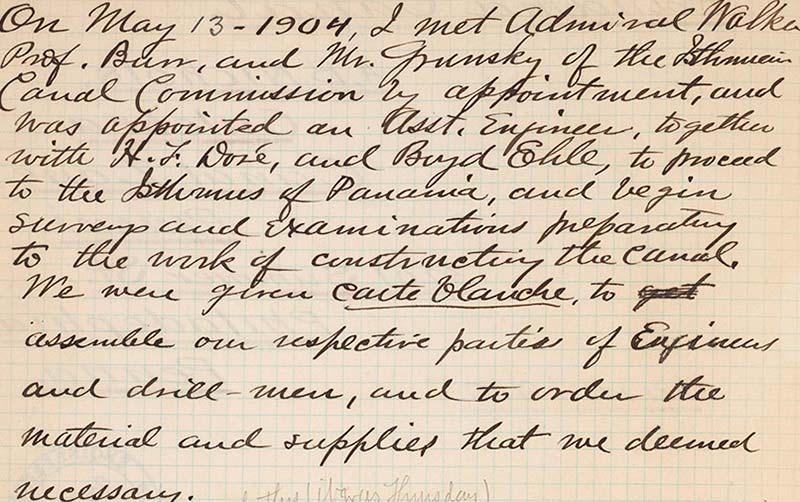 On May 13 - 1904, I met Admiral Walker
Prof. Burr, and Mr. Grunsky of the Isthmian
Canal Commission by appointment, and
was appointed an Asst. Engineer, together
with H. F. Dosé, and Boyd Ehle, to proceed
to the Isthmus of Panama, and begin
surveys and examinations preparatory
to the work of constructing the canal.
We were given carte blanche, to get
assemble our respective parties of Engineers
and drill-men, and to order the
material and supplies that we deemed
necessary. (It was Thursday)